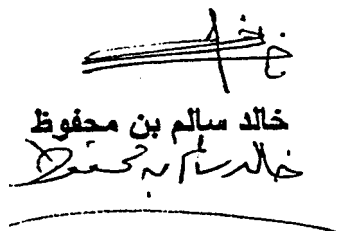 خالد سالم بن محفوظ
خالد سالم بن محفوظ